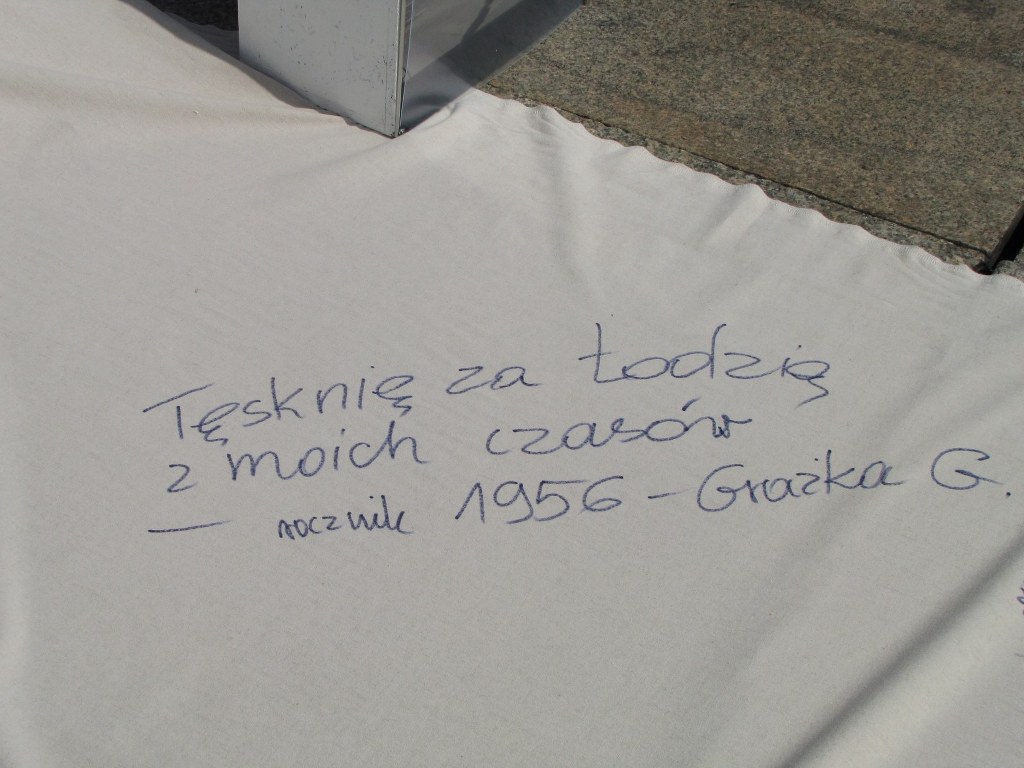 Tęsknię za Łodzią
z moich czasów
— rocznik 1956 – Grażka G.